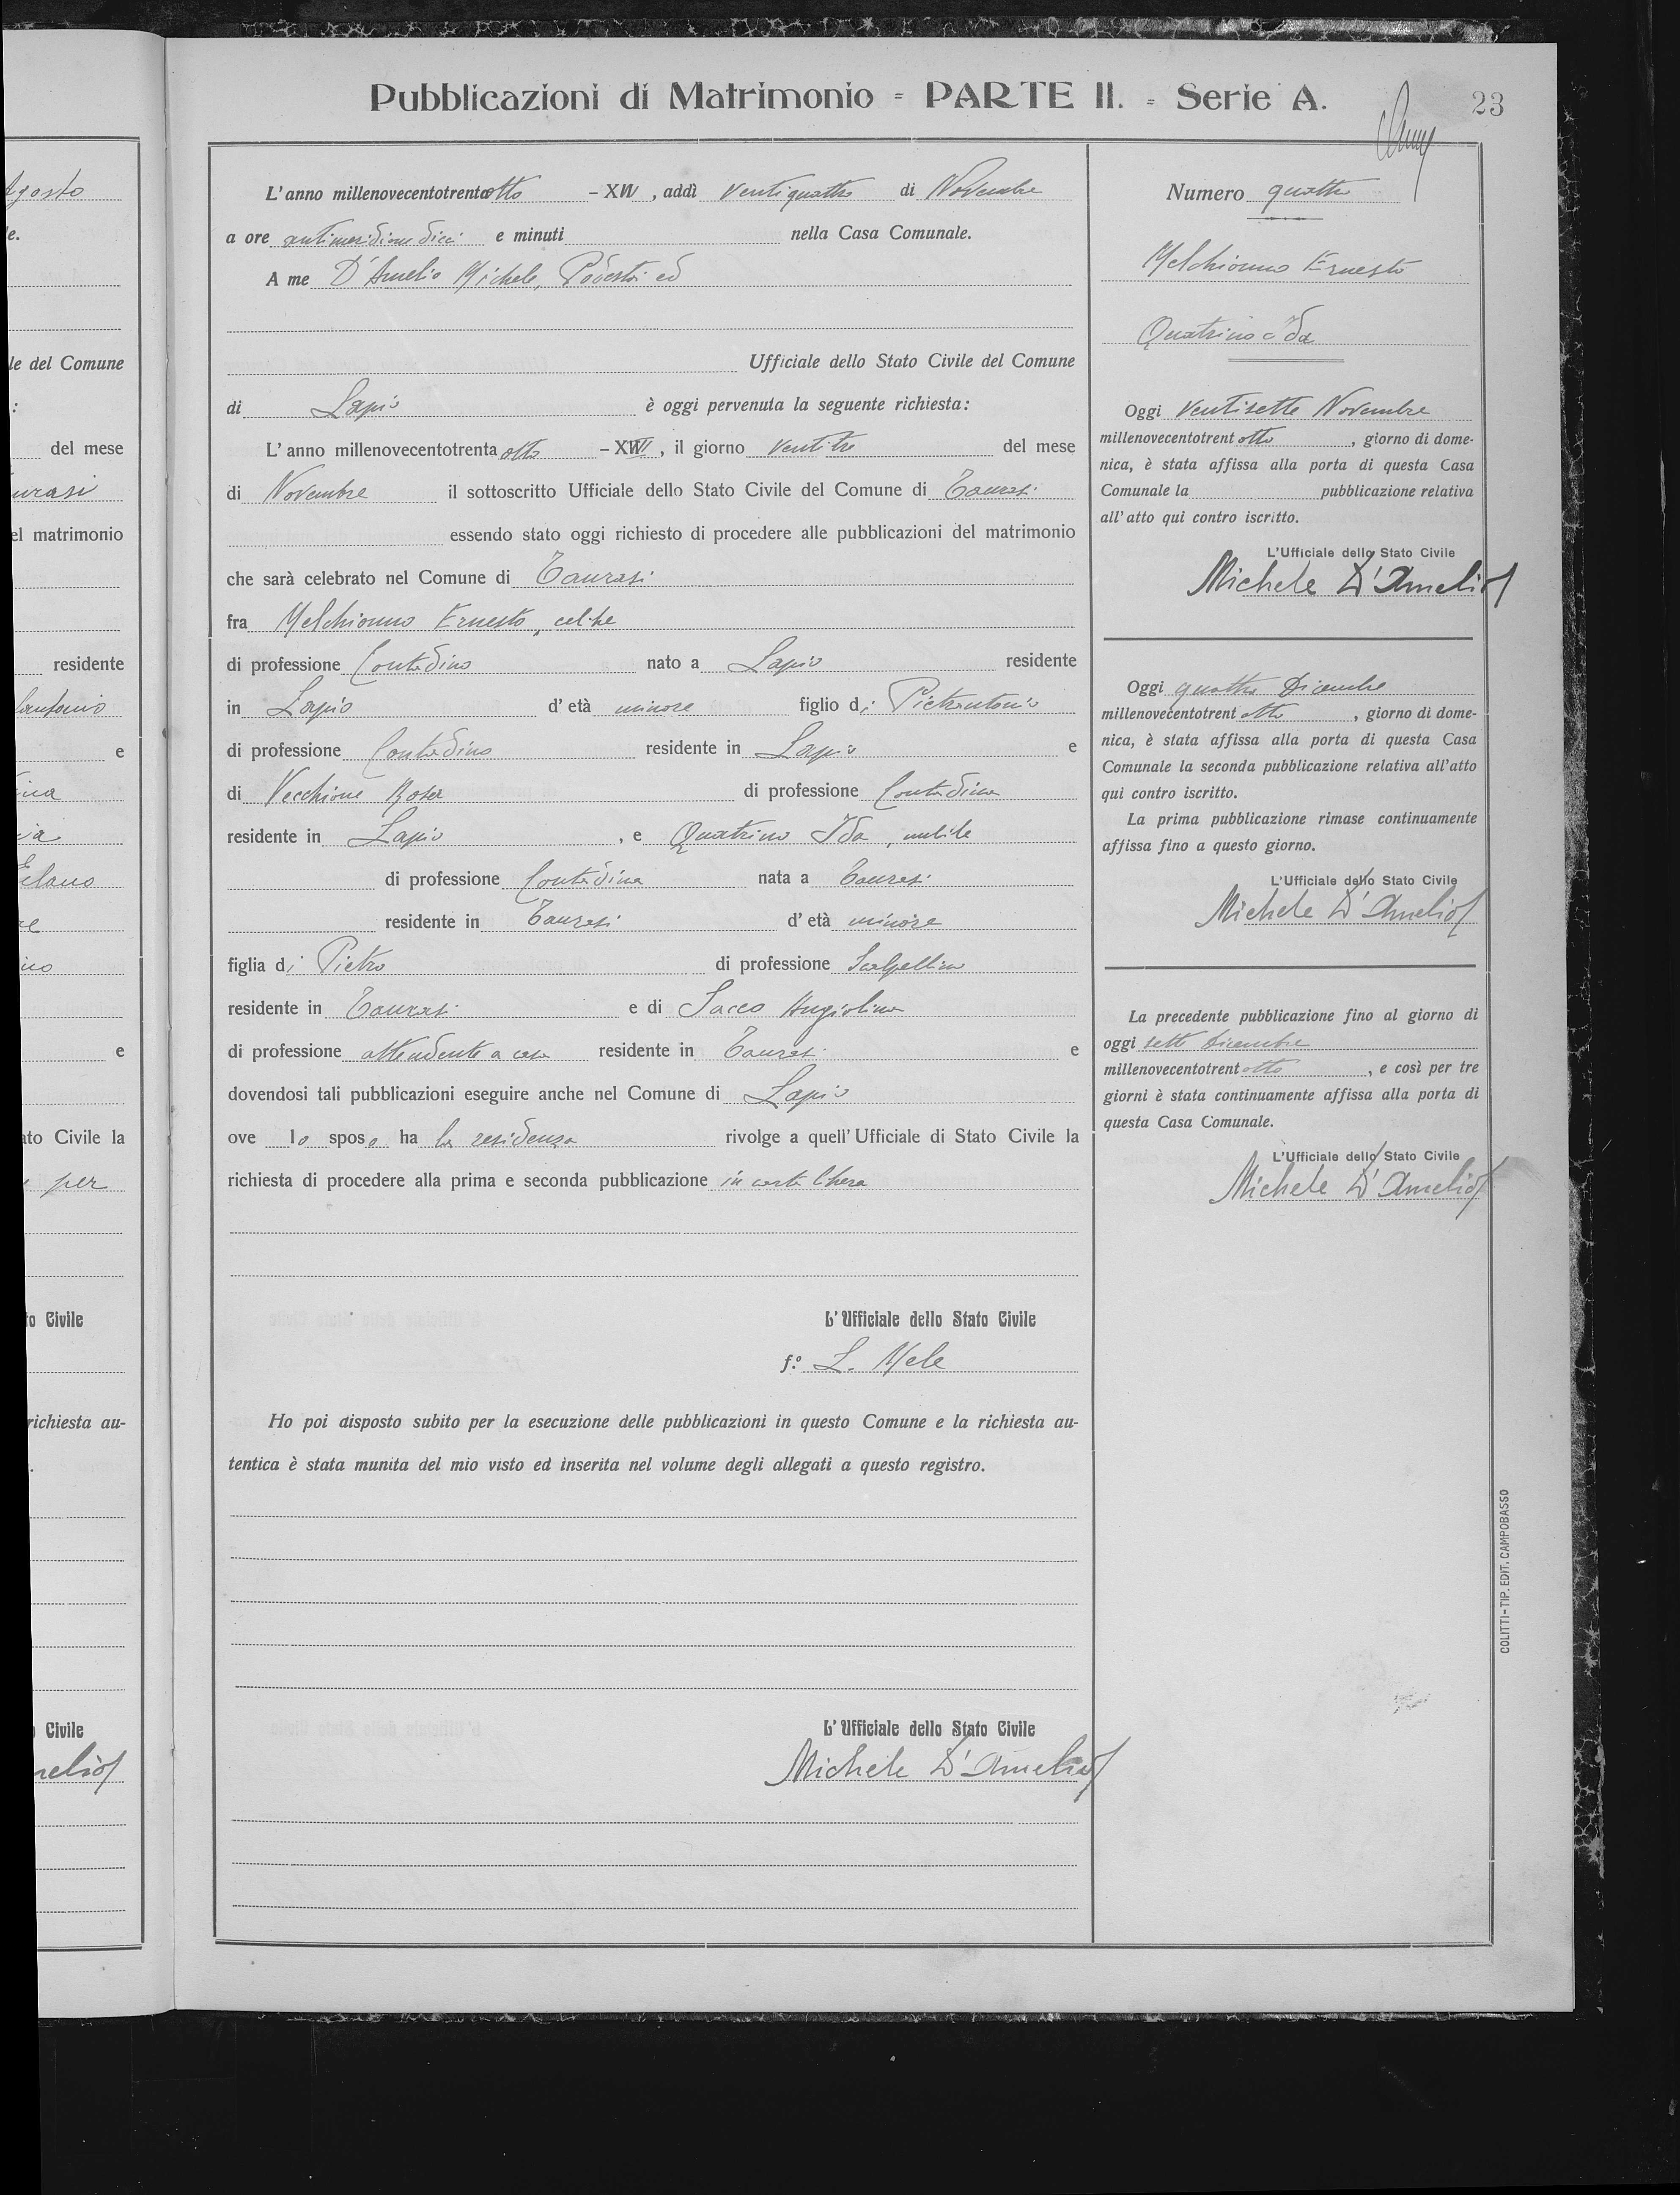 Pubblicazioni di Matrimonio = PARTE II. = Serie A.
23
L'anno millenovecentotrentaotto – XVII, addì ventiquattro di Novembre
a ore antimeridiane dieci e minuti nella Casa Comunale.
A me D'Amelio Michele, Podestà ed
Ufficiale dello Stato Civile del Comune
di Lapio è oggi pervenuta la seguente richiesta:
L'anno millenovecentotrenta otto – XVII, il giorno ventitre del mese
di Novembre il sottoscritto Ufficiale dello Stato Civile del Comune di Taurasi
essendo stato oggi richiesto di procedere alle pubblicazioni del matrimonio
che sarà celebrato nel Comune di Taurasi
fra Melchionno Ernesto, celibe
di professione Contadino nato a Lapio residente
in Lapio d'età minore figlio di Pietrantonio
di professione Contadino residente in Lapio e
di Vecchione Rosa di professione Contadina
residente in Lapio, e Quatrino Ida, nubile
di professione Contadina nata a Taurasi
residente in Taurasi d'età minore
figlia di Pietro di professione Scalpellino
residente in Taurasi e di Sacco Angiolina
di professione attendente a casa residente in Taurasi e
dovendosi tali pubblicazioni eseguire anche nel Comune di Lapio
ove lo sposo ha la residenza rivolge a quell'Ufficiale di Stato Civile la
richiesta di procedere alla prima e seconda pubblicazione in carta libera
L'Ufficiale dello Stato Civile
f.º L. Mele
Ho poi disposto subito per la esecuzione delle pubblicazioni in questo Comune e la richiesta au-
tentica è stata munita del mio visto ed inserita nel volume degli allegati a questo registro.
L'Ufficiale dello Stato Civile
Michele D'Amelio
Numero quattro
Melchionno Ernesto
Quatrino Ida
Oggi ventisette Novembre
millenovecentotrent otto, giorno di dome-
nica, è stata affissa alla porta di questa Casa
Comunale la pubblicazione relativa
all'atto qui contro iscritto.
L'Ufficiale dello Stato Civile
Michele D'Amelio
Oggi quattro Dicembre
millenovecentotrent otto, giorno di dome-
nica, è stata affissa alla porta di questa Casa
Comunale la seconda pubblicazione relativa all'atto
qui contro iscritto.
La prima pubblicazione rimase continuamente
affissa fino a questo giorno.
L'Ufficiale dello Stato Civile
Michele D'Amelio
La precedente pubblicazione fino al giorno di
oggi sette Dicembre
millenovecentotrent otto, e così per tre
giorni è stata continuamente affissa alla porta di
questa Casa Comunale.
L'Ufficiale dello Stato Civile
Michele D'Amelio
COLITTI-TIP. EDIT. CAMPOBASSO
le del Comune
del mese
el matrimonio
residente
e
e
ato Civile la
per
to Civile
richiesta au-
Civile